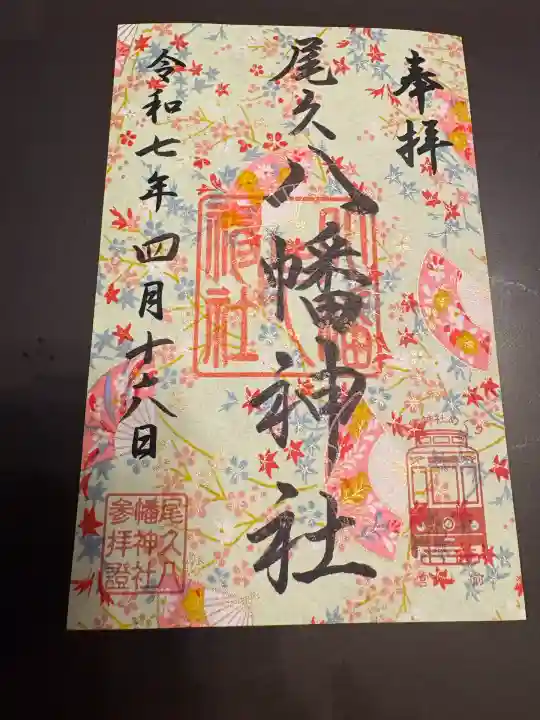 奉拝
尾久八幡神社
令和七年四月十六日
八幡
神社
尾久八
幡神社
参拝證